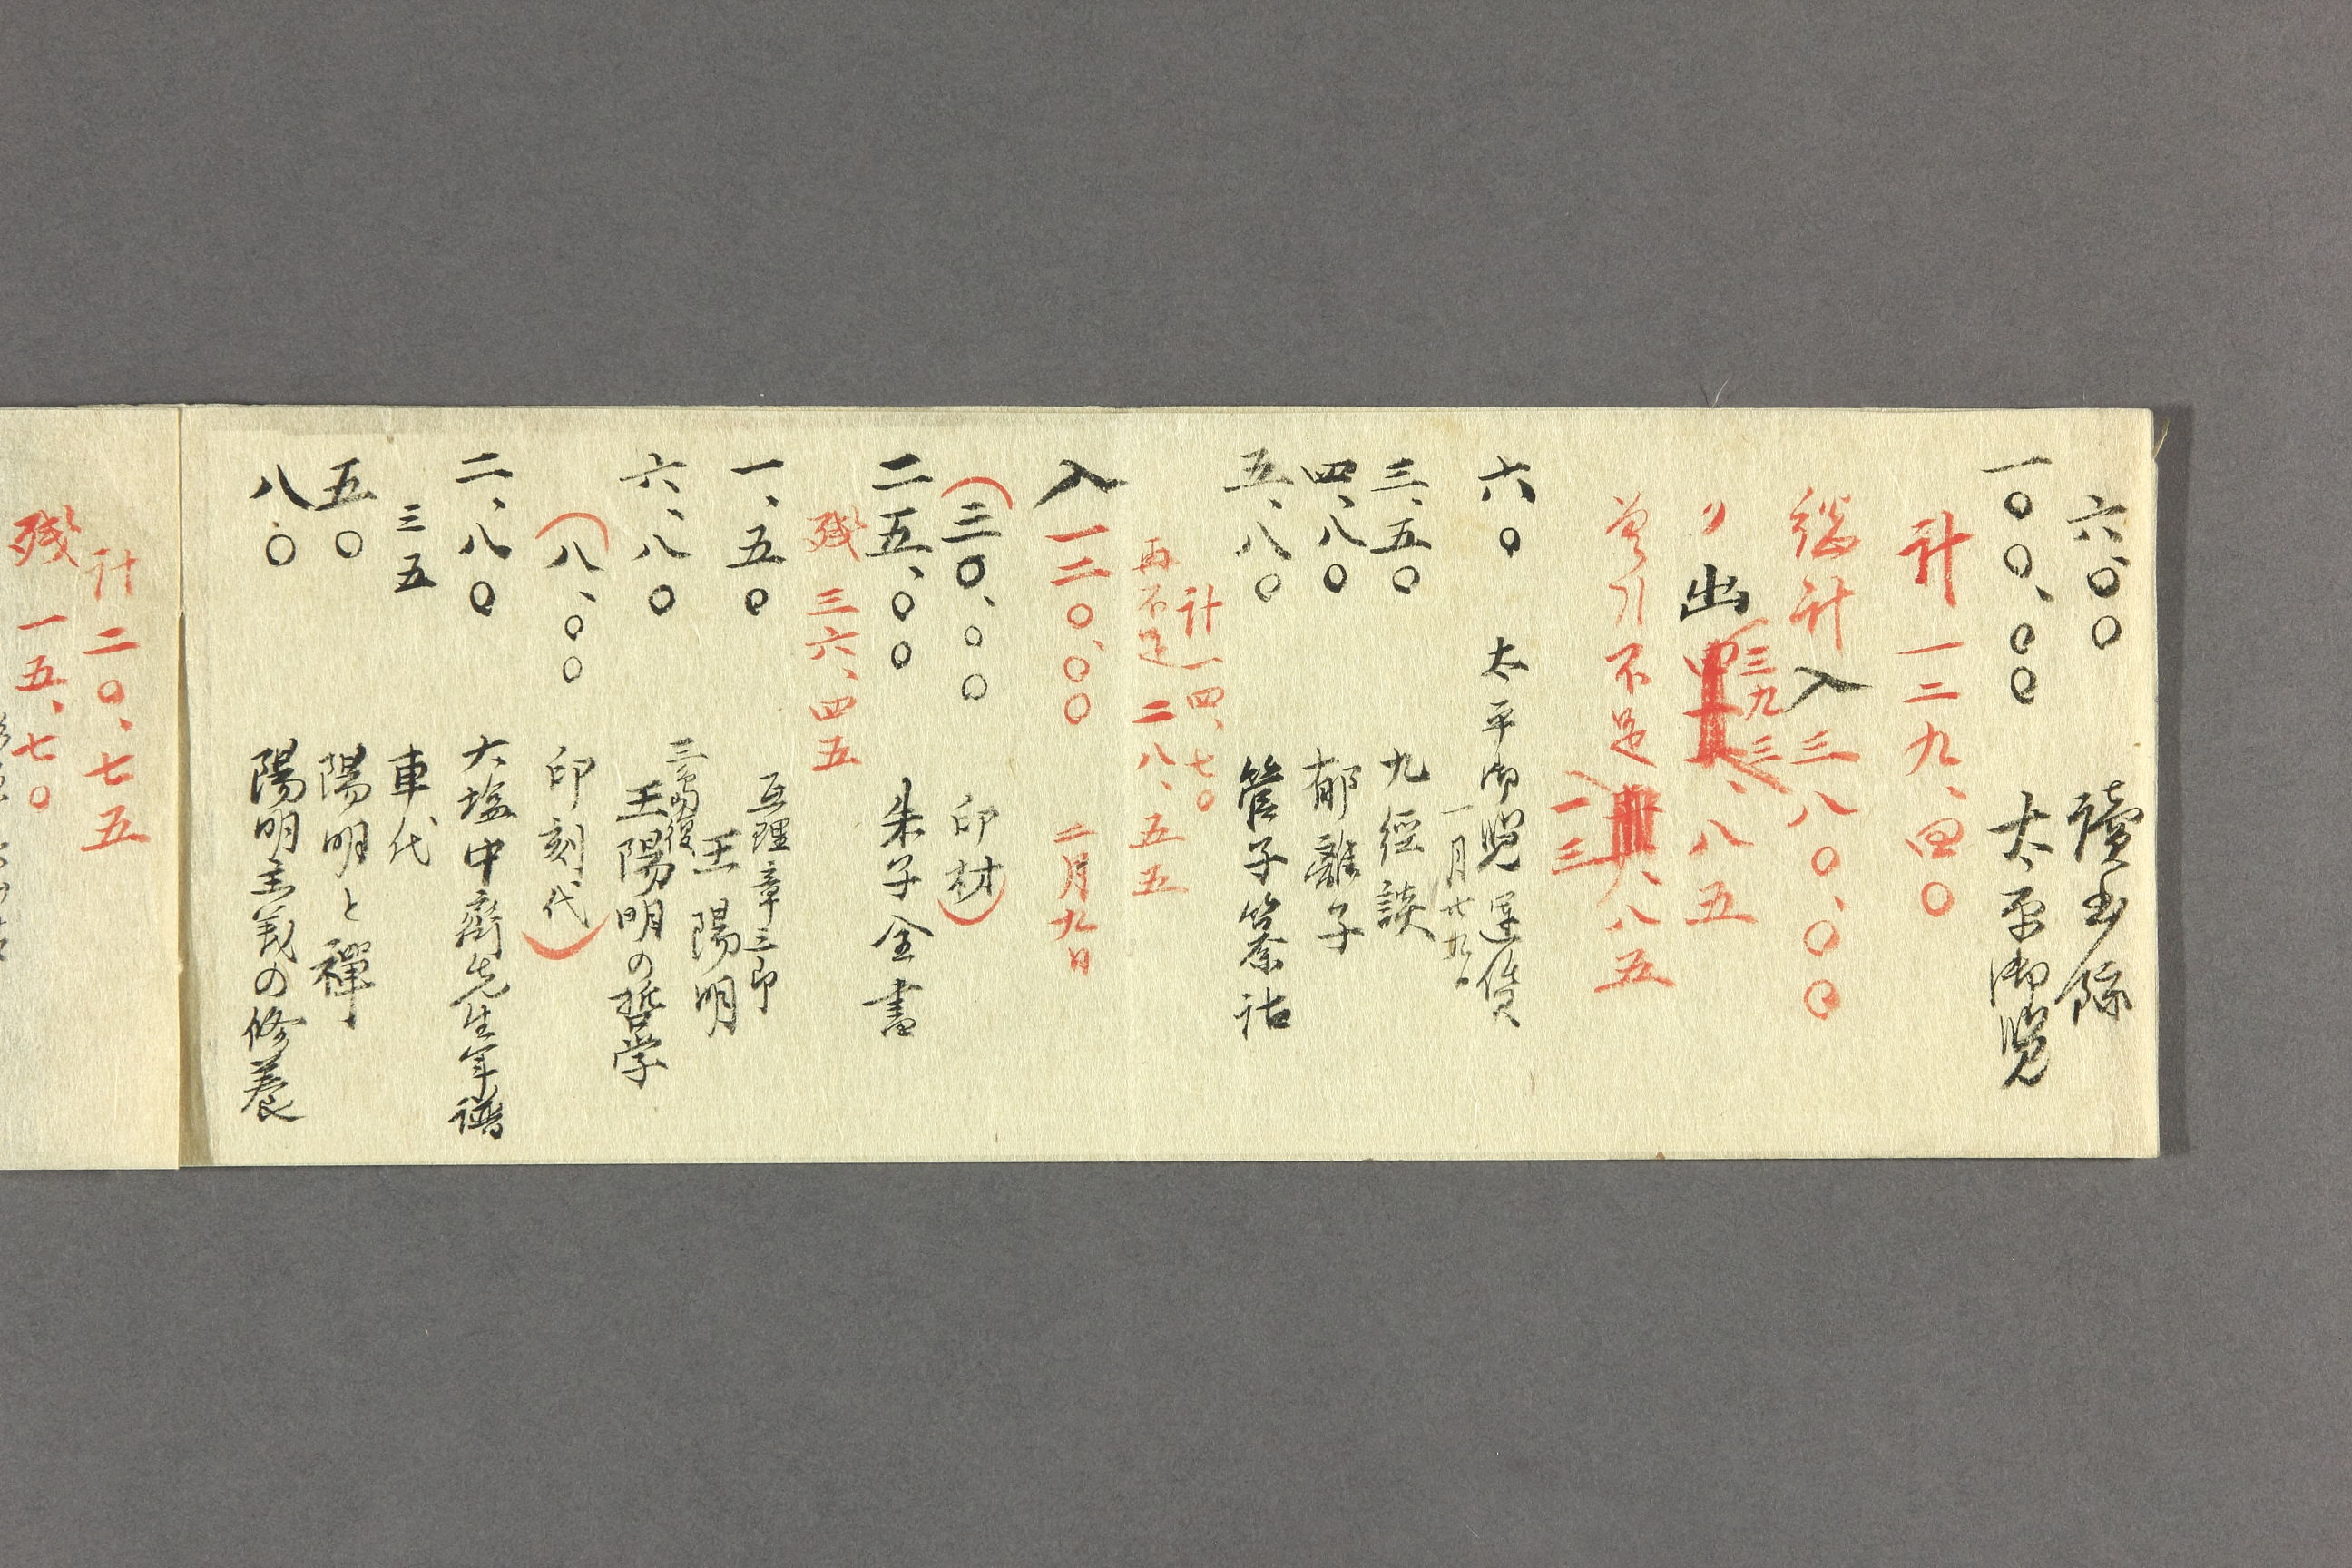 六、〇〇 讀書餘
一〇〇、〇〇 太平御覧
計 一二九、四〇
総計 入 三八〇、〇〇
〃 出 三九三、八五
差引不足 一三、八五
六〇 太平御覧運賃
一月廿九日
三、五〇 九經談
四、八〇 郁離子
五、八〇 管子纂詁
計 一四、七〇
再不足 二八、五五
入 一二〇、〇〇 二月九日
(三〇、〇〇 印材)
二五、〇〇 朱子全書
残 三六、四五
一、五〇 亘理章三郎 王陽明
六、八〇 三島復 王陽明の哲学
(八、〇〇 印刻代)
二、八〇 大塩中齋先生年譜
三五 車代
五〇 陽明と禪
八〇 陽明主義の修養
計 二〇、七五
残 一五、七〇